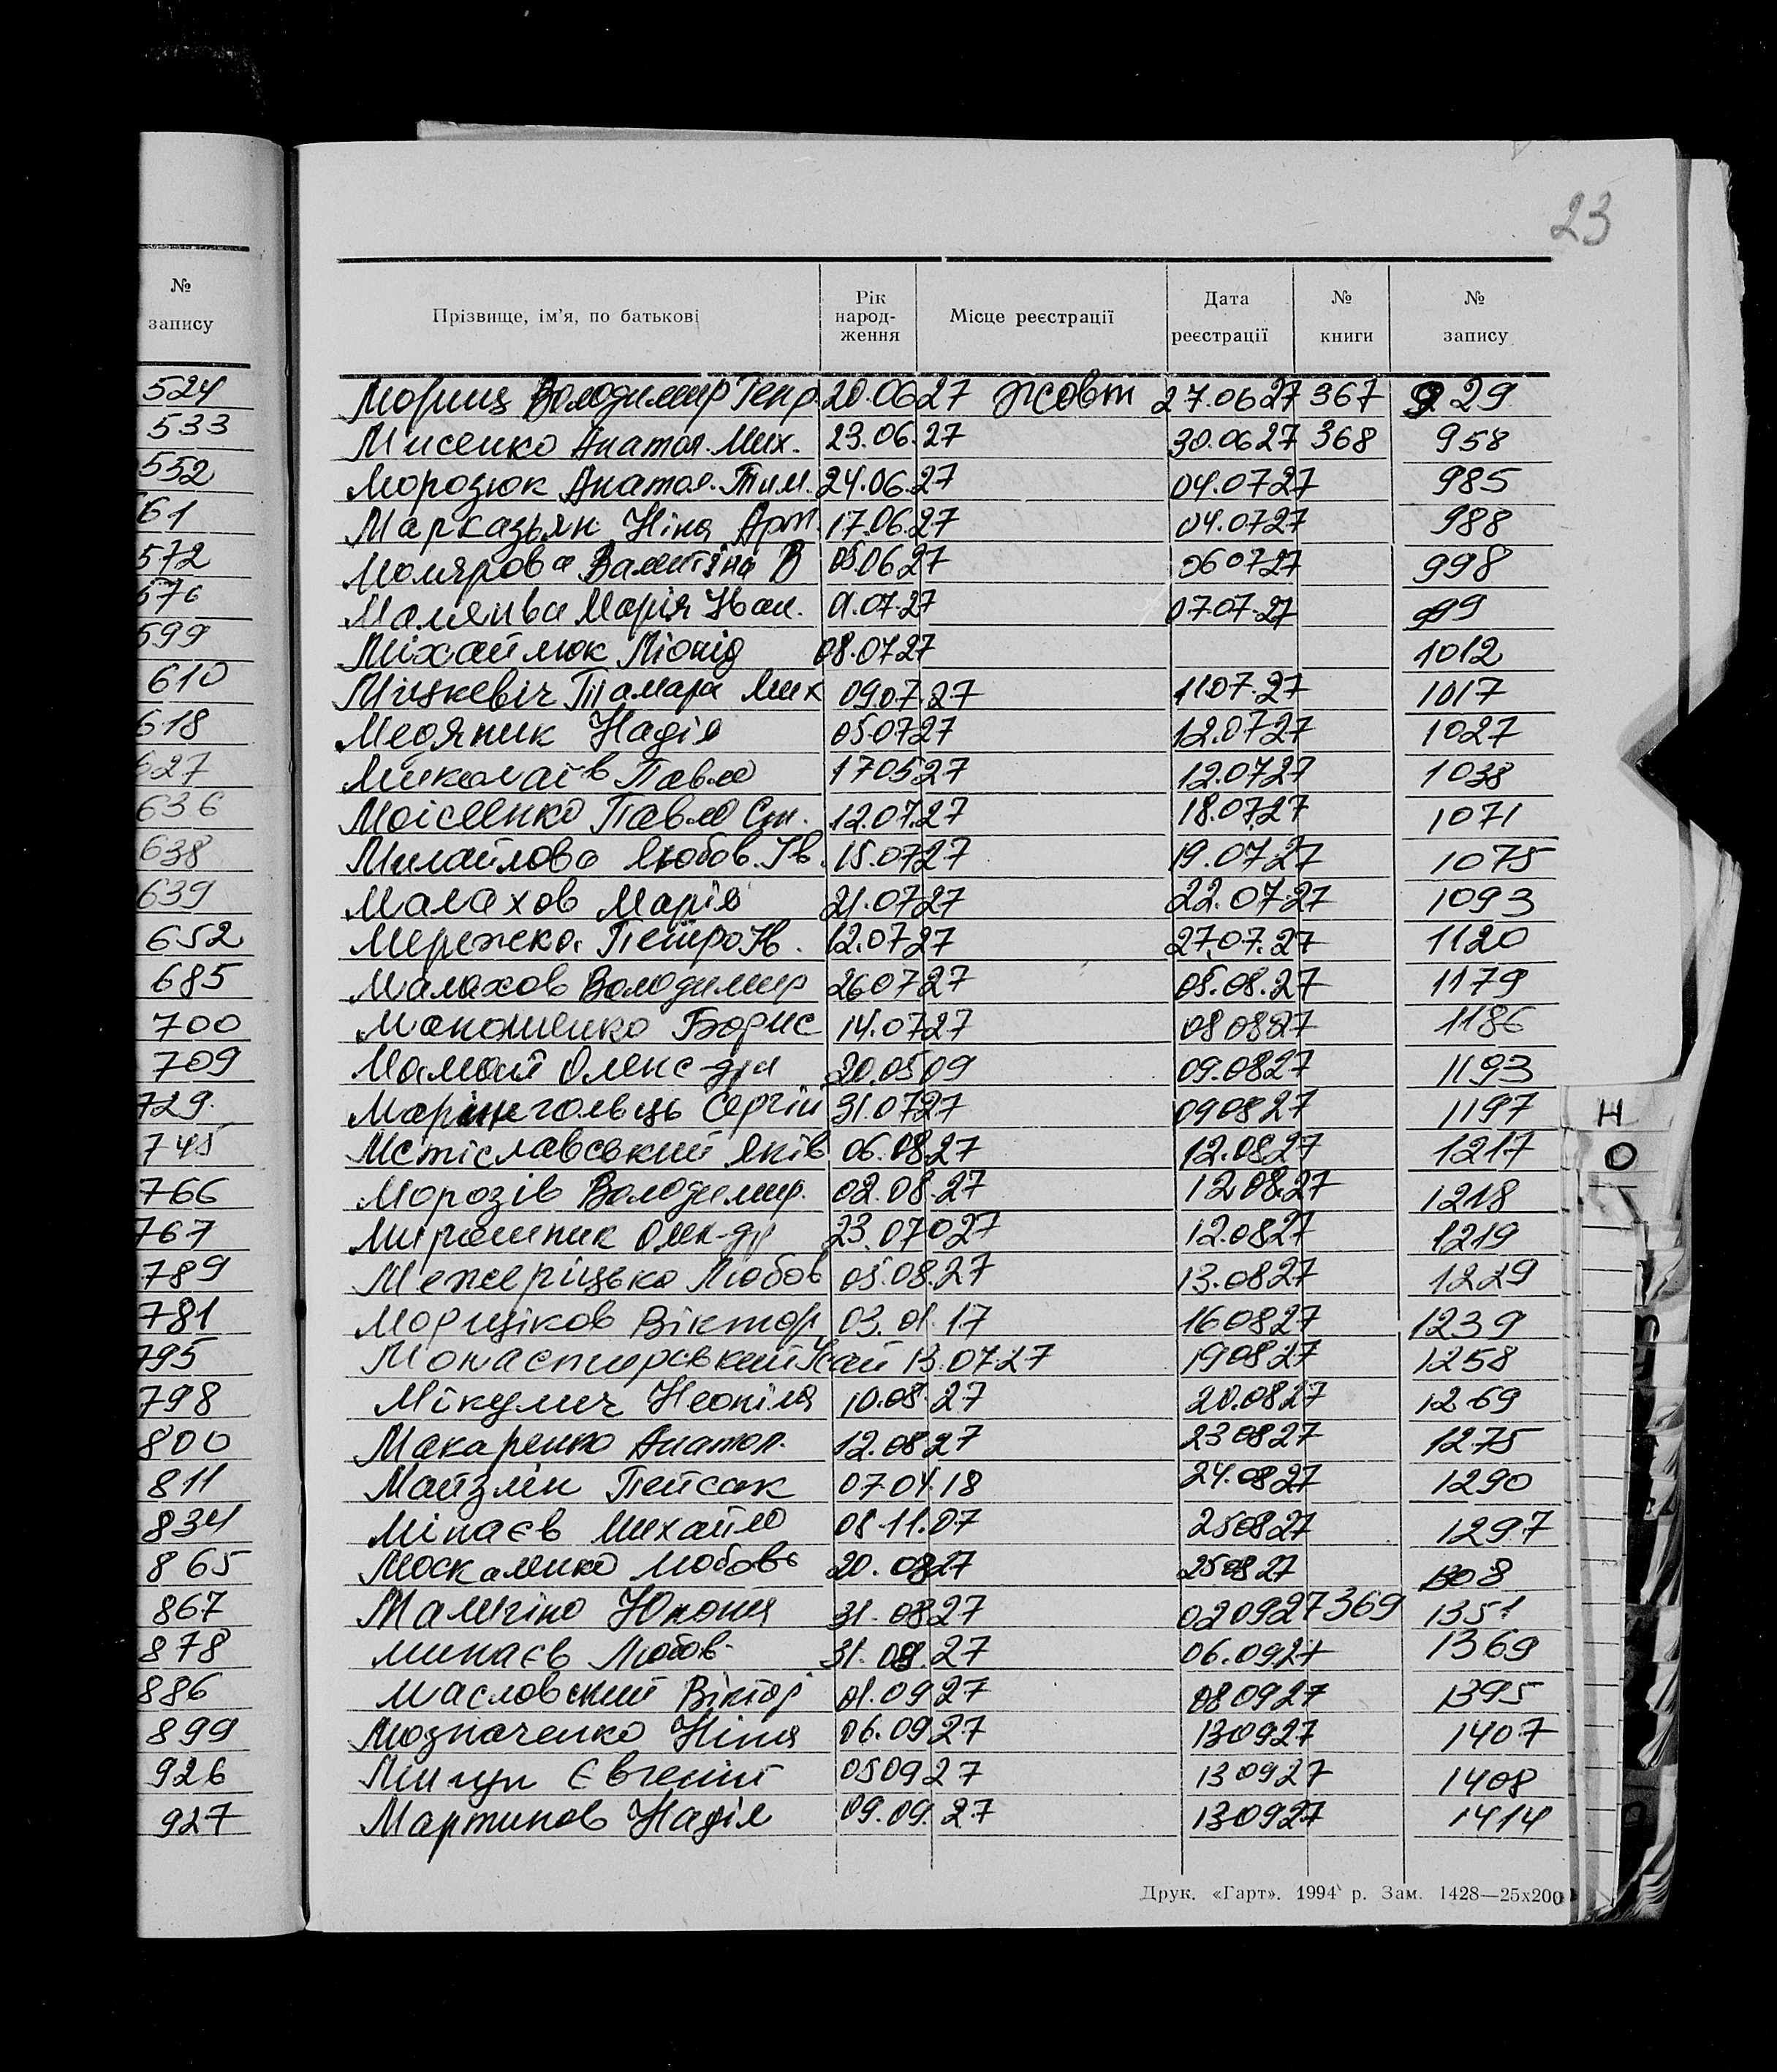 23
№
запису
524
533
552
61
572
576
599
610
618
627
636
638
639
652
685
700
709
729
745
766
767
789
781
795
798
800
811
834
865
867
878
886
899
926
927
Прізвище, ім'я, по батькові Рік народ-ження Місце реєстрації Дата реєстрації № книги № запису
Мориц Володимир Генр. 20.06 27 Жовт 27.06 27 367 929
Мисенко Анатол. Мих. 23.06.27 30.06 27 368 958
Морозюк Анатол. Тим. 24.06.27 04.07 27 985
Марказьян Ніна Арт. 17.06.27 04.07 27 988
Молярова Валентіна В 05.06 27 06 07 27 998
Марія Іван. 01.07.27 07.07.27 999
Міхайлюк Ліонід 08.07 27 1012
Міцкевіч Тамара Мих 09.07.27 11.07.27 1017
Надія 05.07 27 12.07 27 1027
Миколаів Павло 17 05 27 12.07 27 1038
Моісеенко Павло Ст. 12.07.27 18.07.27 1071
Михайлова Любов. Ів. 15.07 27 19.07.27 1075
Малахов Марія 21.07 27 22.07.27 1093
Мережко. Петро Ів. 12.07 27 27.07.27 1120
Малахов Володимир 26 07 27 05.08.27 1179
Борис 14.07 27 08 08 27 1186
Мамай Олекс-др 20.05 09 09.08 27 1193
Сергій 31.07 27 09 08 27 1197
Мстіславський Яків 06.08.27 12.08.27 1217
Морозів Володимир. 02.08.27 12 08.27 1218
Мирошник Олек-др 23.07 027 12.08 27 1219
Межеріцька Любов 05.08.27 13.08 27 1229
Морщіков Віктор 03.01.17 16 08 27 1239
Монастирський Ісай 13.07.27 19 08 27 1258
Мікулич 10.08.27 20.08 27 1269
Макаренко Анатол. 12.08 27 23 08 27 1275
Майзлін Пейсак 07.01.18 24.08 27 1290
Мінаєв Михайло 08.11.07 25 08 27 1297
Москаленко Любовь 20.08 27 25 08 27 1308
31.08 27 02 09 27 369 1351
Минаєв Любов 31.08.27 06.09.27 1369
Масловский Віктор 01.09 27 08 09 27 1395
Мозначенко Ніна 06.09 27 13 09 27 1407
Євгений 05 09 27 13 09 27 1408
Мартинов Надія 09.09.27 13 09 27 1414
Н
О
Друк. «Гарт». 1994 р. Зам. 1428—25х200